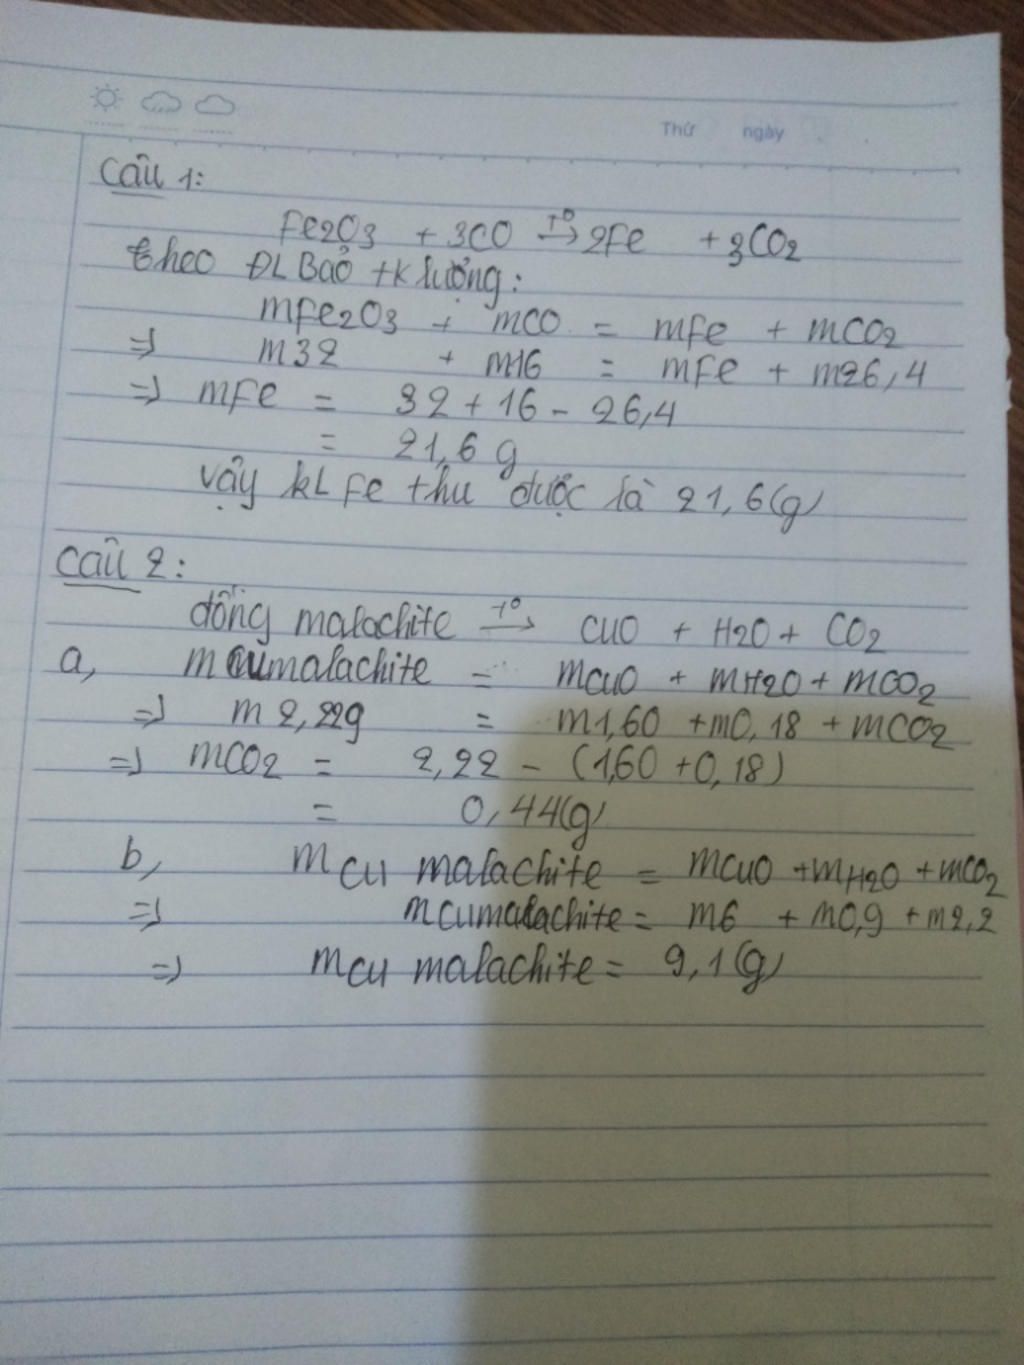 Thứ ngày
Câu 1:
Fe2O3 + 3CO t°→ 2Fe + 3CO2
theo ĐL Bảo +k lượng:
mFe2O3 + mCO = mFe + mCO2
=> m32 + m16 = mFe + m26,4
=> mFe = 32 + 16 - 26,4
= 21,6 g
vậy kL Fe thu được là 21,6(g)
Câu 2:
đồng malachite t°→ CuO + H2O + CO2
a, mcumalachite = mcuO + mH2O + mCO2
=> m 2,22g = m1,60 + m0,18 + mCO2
=> mCO2 = 2,22 - (1,60 + 0,18)
= 0,44(g)
b, mcu malachite = mcuO + mH2O + mCO2
=> mcumalachite = m6 + m0,9 + m2,2
=> mcu malachite = 9,1(g)